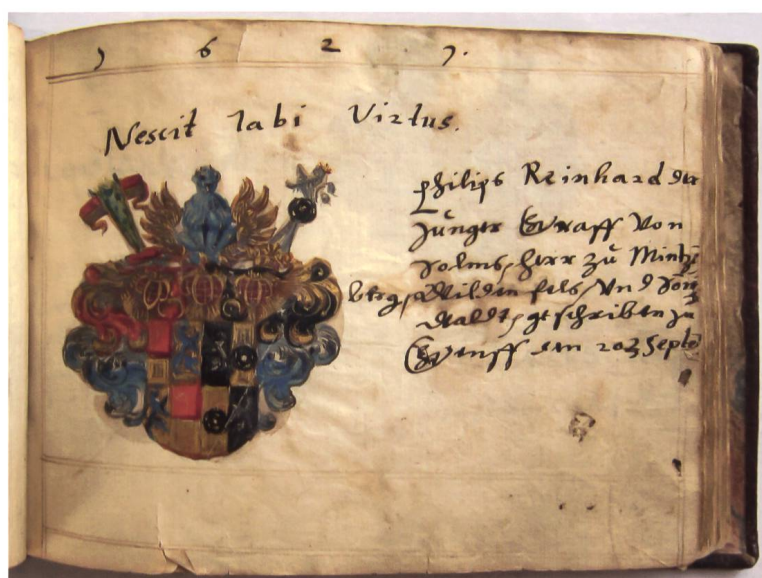 1 6 2 7.
Nescit labi Virtus.
Philips Reinhard der
Jünger Graff Von
Solms, Herr zu Mintze
berg, Wilden fels, Vnd Son
waldt, geschriben zu
Genff den 20 Septe